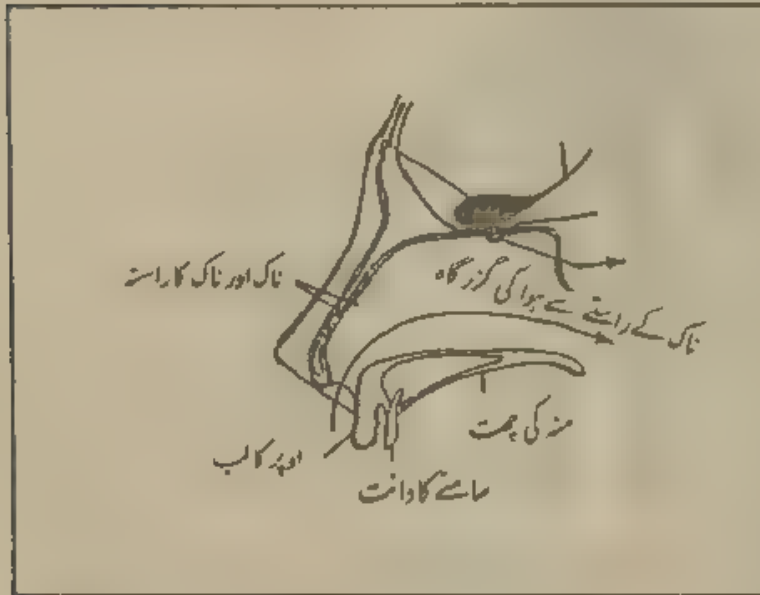 ناک اور ناک کا راستہ
ناک کے راستے سے ہوا کی گزر گاہ
منہ کی چھت
اوپر کا لب
سامنے کا دانت